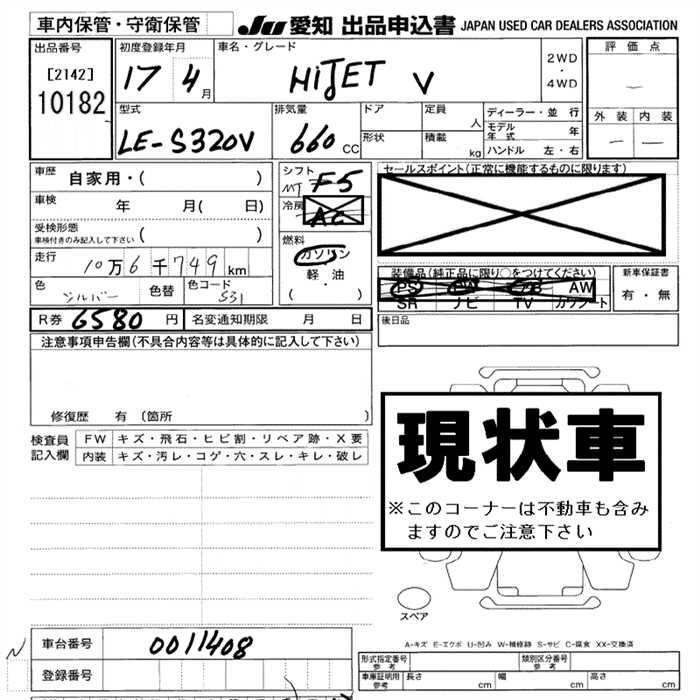 車内保管・守衛保管
JU 愛知 出品申込書 JAPAN USED CAR DEALERS ASSOCIATION
出品番号
[2142]
10182
初度登録年月
17 4月
車名・グレード
HIJET V
2WD
・
4WD
評価点
外装 内装
型式
LE-S320V
排気量
660 CC
ドア
形状
定員 人
積載 kg
ディーラー・並行
モデル年式 年
ハンドル 左・右
車歴
自家用・( )
車検 年 月( 日)
受検形態
車検付きのみ記入して下さい ( )
走行 10万6千749km
色 シルバー 色替 色コード S31
シフト
MT F5
冷房
AC
燃料
ガソリン
軽・油
・
( )
セールスポイント(正常に機能するものに限ります)
装備品(純正品に限り○をつけてください)
PS PW エアB AW
SR ナビ TV カワシート
新車保証書
有・無
R券 6580 円 名変通知期限 月 日
後日品
注意事項申告欄(不具合内容等は具体的に記入して下さい)
修復歴 有(箇所 )
検査員
記入欄
FW キズ・飛石・ヒビ割・リペア跡・X要
内装 キズ・汚レ・コゲ・穴・スレ・キレ・破レ
現状車
※このコーナーは不動車も含み
ますのでご注意下さい
スペア
A-キズ E-エクボ U-凹み W-補修跡 S-サビ C-腐食 XX-交換済
N
車台番号 0011408
登録番号
形式指定番号
参考
類別区分番号
参考
車庫証明用
参考
長さ cm 幅 cm 高さ cm